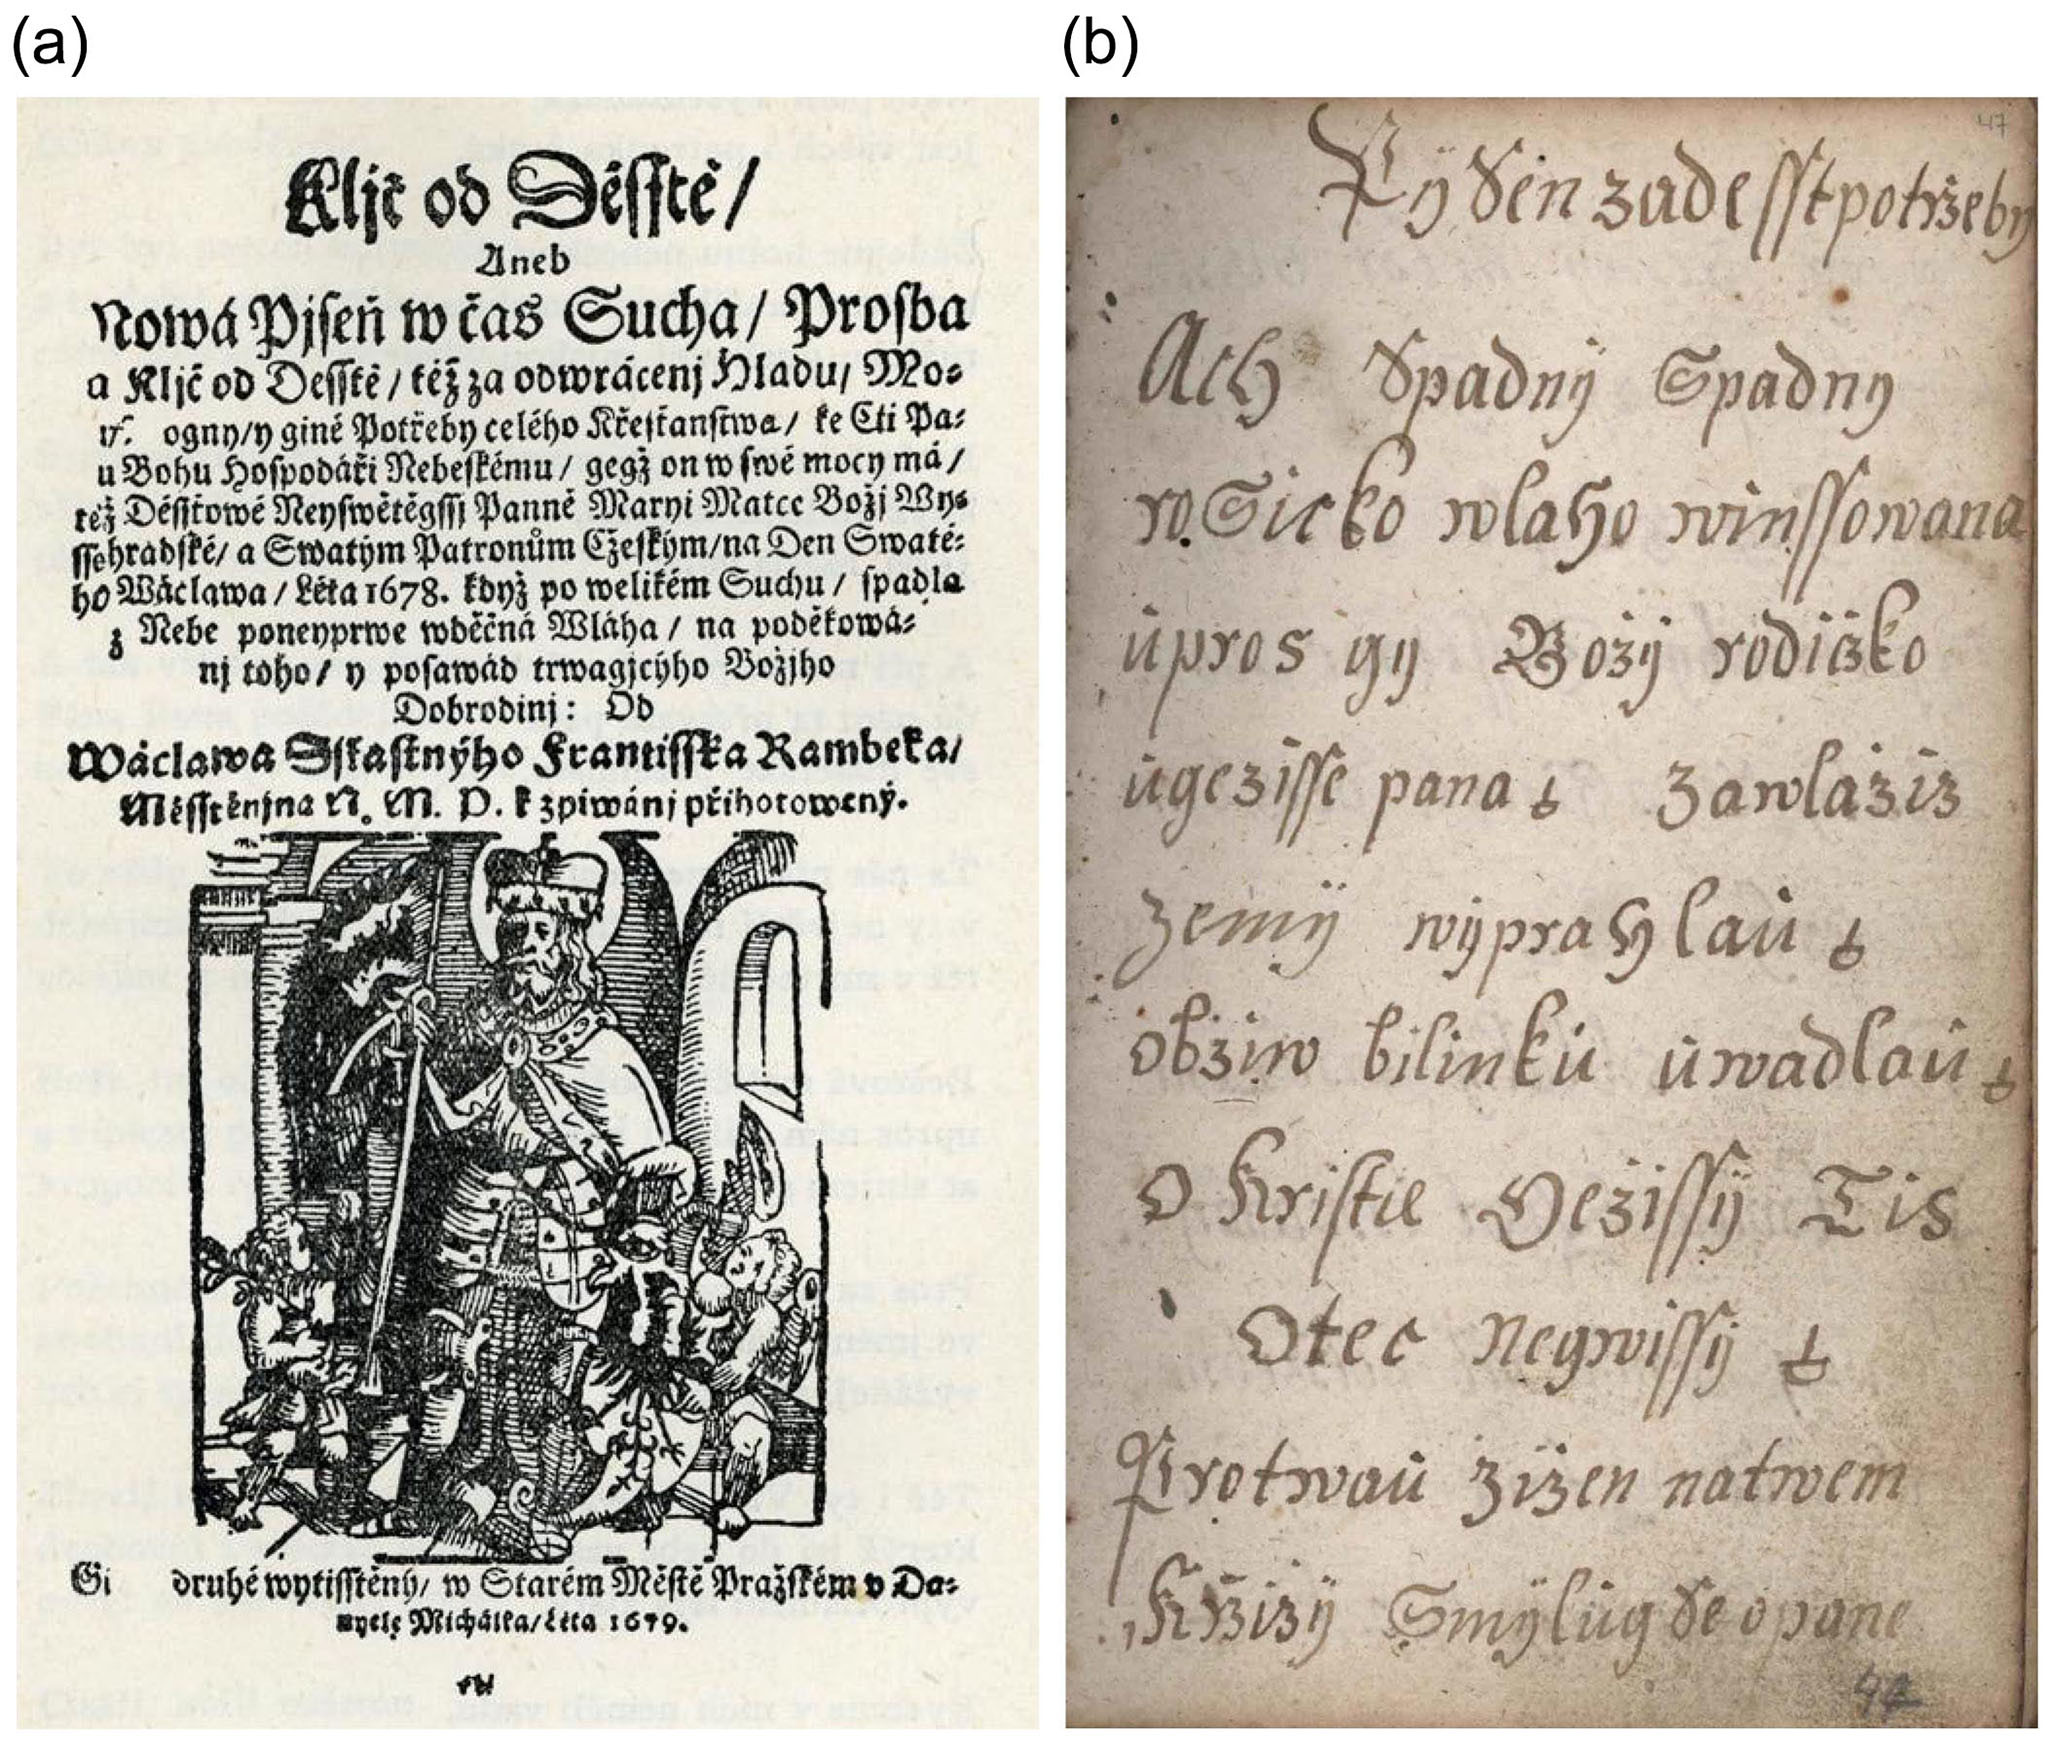 (a)
(b)
Kljč od Děsstě/
Aneb
Nowá Pjseň w čas Sucha/ Prosba
a Kljč od Desstě/ též za odwrácenj Hladu/ Mo=
ogny/y giné Potřeby celého Křestanstwa/ ke Cti Pa=
u Bohu Hospodáři Nebeskému/ gegž on w swé mocy má/
též Désstowé Neyswětěgssj Panně Maryi Matce Božj Wy=
ssehradské/ a Swatým Patronům Cžeským/na Den Swaté=
ho Wáclawa/ Léta 1678. když po welikém Suchu/ spadla
z Nebe poneyprwe wděčná Wláha/ na poděkowá=
nj toho/ y posawád trwagjcýho Božjho
Dobrodinj: Od
Wáclawa Sstastnýho Frantisska Rambeka/
Měsstěnjna N. M. P. k zpiwánj přihotowený.
Gi druhé wytisstěný/ w Starém Městě Pražském v Da=
nyele Michálka/ Léta 1679.
47
Pÿsen za desst potržebny
Ach Spadnÿ Spadny
roSicko wlaho winssowana
upros gy Božÿ rodičko
ugezisse pana zawlaziz
zemÿ wÿprahlau
obziw bilinku uwadlau
O Kristie Gežissÿ Tis
Otec Negwissÿ
Protwau žižen natwem
Kržižÿ Smÿlug Se o pane